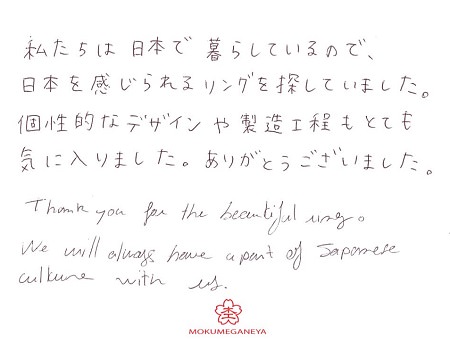 私たちは日本で暮らしているので、
日本を感じられるリングを探していました。
個性的なデザインや製造工程もとても
気に入りました。ありがとうございました。
Thank you for the beautiful rings.
We will always have a part of Japanese
culture with us.
MOKUMEGANEYA